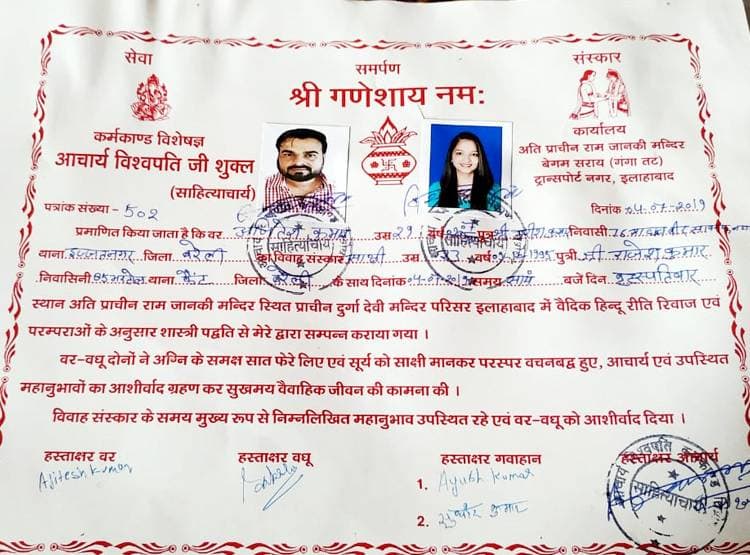 सेवा समर्पण संस्कार
श्री गणेशाय नम:
कर्मकाण्ड विशेषज्ञ
आचार्य विश्वपति जी शुक्ल
(साहित्याचार्य)
कार्यालय
अति प्राचीन राम जानकी मन्दिर
बेगम सराय (गंगा तट)
ट्रान्सपोर्ट नगर, इलाहाबाद
पत्रांक संख्या - 502 दिनांक 04-07-2019
प्रमाणित किया जाता है कि वर अजितेश कुमार उम्र 29 वर्ष पुत्र श्री निवासी
थाना इज्जतनगर जिला बरेली का विवाह संस्कार साक्षी उम्र 23 वर्ष पुत्री श्री राजेश कुमार
निवासिनी थाना कैंट जिला बरेली के साथ दिनांक 04-07-2019 समय सायं बजे दिन बृहस्पतिवार
स्थान अति प्राचीन राम जानकी मन्दिर स्थित प्राचीन दुर्गा देवी मन्दिर परिसर इलाहाबाद में वैदिक हिन्दू रीति रिवाज एवं
परम्पराओं के अनुसार शास्त्री पद्वति से मेरे द्वारा सम्पन्न कराया गया ।
वर-वधू दोनों ने अग्नि के समक्ष सात फेरे लिए एवं सूर्य को साक्षी मानकर परस्पर वचनबद्व हुए, आचार्य एवं उपस्थित
महानुभावों का आशीर्वाद ग्रहण कर सुखमय वैवाहिक जीवन की कामना की ।
विवाह संस्कार के समय मुख्य रूप से निम्नलिखित महानुभाव उपस्थित रहे एवं वर-वधू को आशीर्वाद दिया ।
हस्ताक्षर वर हस्ताक्षर वधू हस्ताक्षर गवाहान हस्ताक्षर आचार्य
Ajitesh Kumar
1. Ayush Kumar
2. सुधीर कुमार
साहित्याचार्य